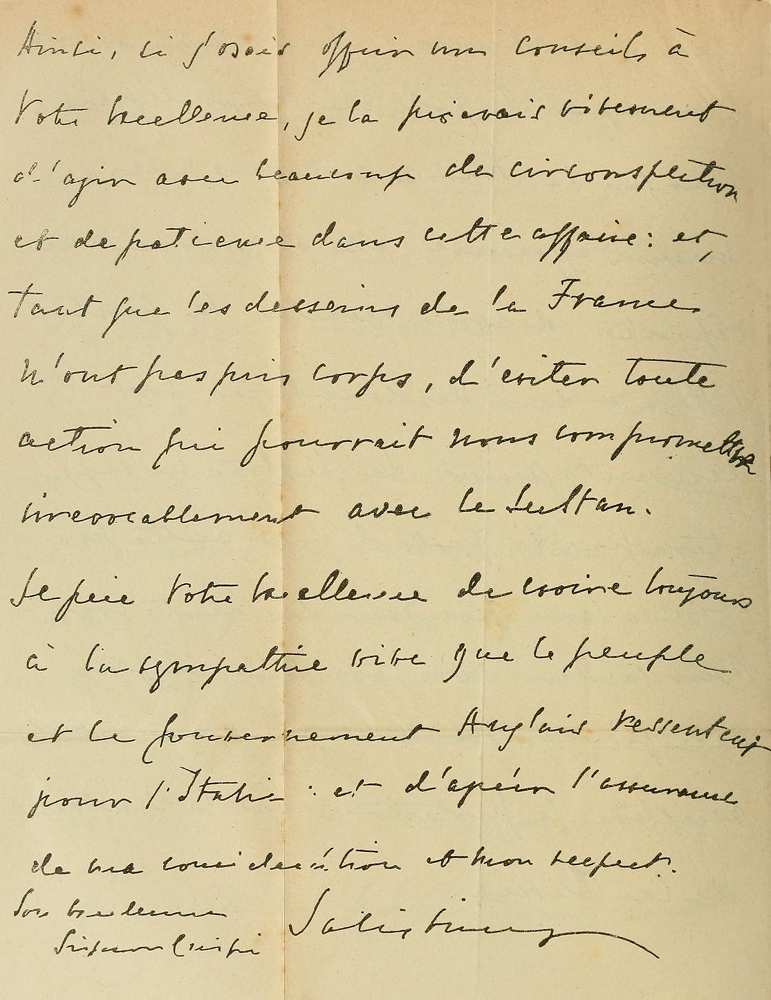 Ainsi, si j'osais offrir un conseils à
Votre Excellence, je la prierais vivement
d'agir avec beaucoup de circonspection
et de patience dans cette affaire : et,
tant que les desseins de la France
n'ont pas pris corps, d'éviter toute
action qui pourrait nous compromettre
irrevocablement avec le Sultan.
Je prie Votre Excellence de croire toujours
à la sympathie vive que le peuple
et le gouvernement Anglais ressentent
pour l'Italie : et d'agréer l'assurance
de ma considération et mon respect.
Son Excellence
Signor Crispi
Salisbury